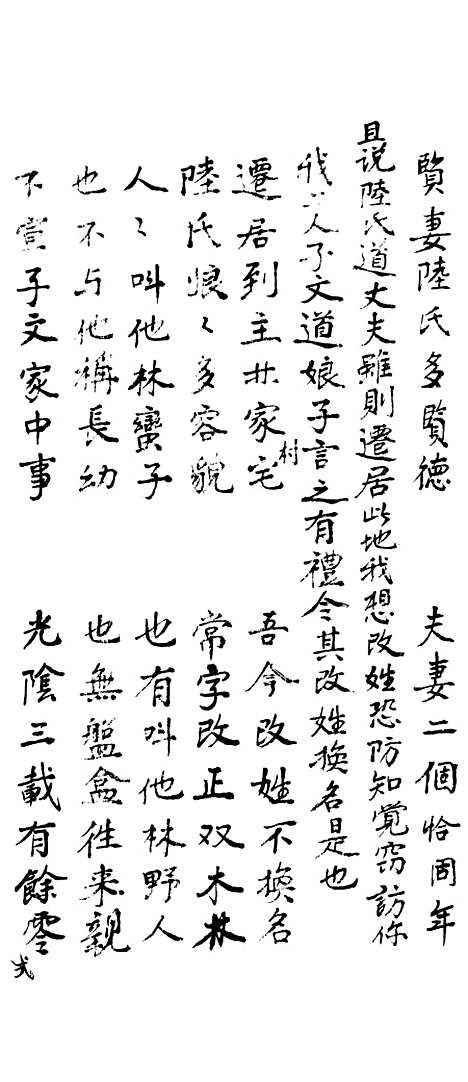 賢妻陸氏多賢德　夫妻二個恰周年
且说陸氏道丈夫雖則遷居此地我想改姓恐防知覚窃訪你
我二人子文道娘子言之有禮今其改姓換名是也
遷居到主井家宅　吾今改姓不換名
村
陸氏娘〻多容貌　常字改正双木林
人〻叫他林蠻子　也有叫他林野人
也不与他稱長幼　也無盤盒往来親
不萱子文家中事　光陰三載有餘零
弍